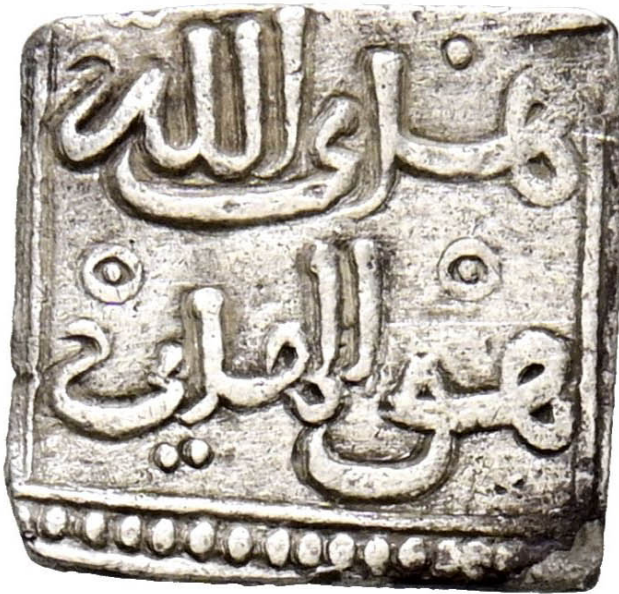 هدى الله
هو الهدى